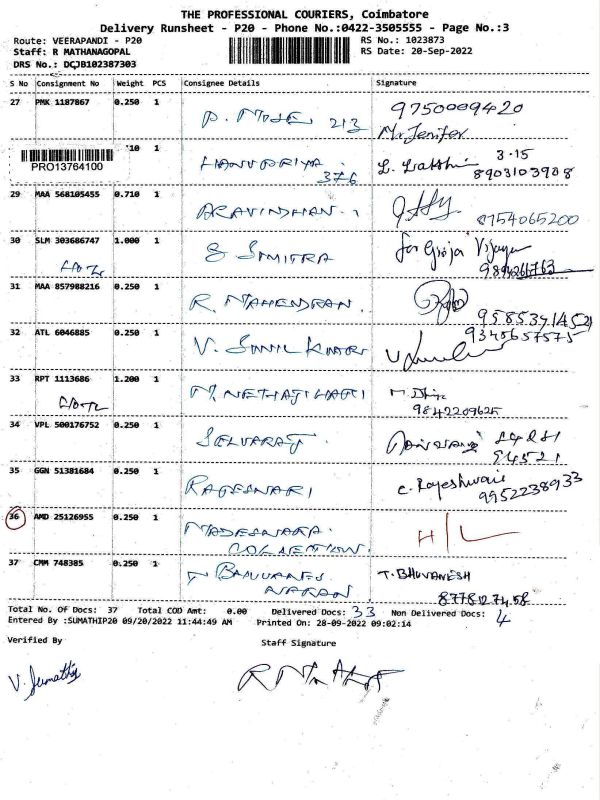 THE PROFESSIONAL COURIERS, Coimbatore
Delivery Runsheet - P20 - Phone No.:0422-3505555 - Page No.:3
Route: VEERAPANDI - P20 RS No.: 1023873
Staff: R MATHANAGOPAL RS Date: 20-Sep-2022
DRS No.: DCJB102387303
S No Consignment No Weight PCS Consignee Details Signature
27 PMK 1187867 0.250 1 213 9750009420
Mr Jenifer
PRO13764100 10 1 HANUPRIYA. 376 L. Lakshmi 3-15 8903103908
29 MAA 568105455 0.710 1 ARAVINDHAN. 8754065200
30 SLM 303686747 1.000 1 S SUMITRA for Girija Vijayan
31 MAA 857988216 0.250 1 R. MAHENDRAN. 9585371452
32 ATL 6046885 0.250 1 V. SUNIL KUMAR 9340657575
33 RPT 1113686 1.200 1 M. NETHAJI 9842209625
34 VPL 500176752 0.250 1 SELVARAJ. 94521
35 GGN 51381684 0.250 1 RAGESWARI C. Rajeshwari 9952238933
36 AMD 25126955 0.250 1 MADESWARA H/L
COLLECTION.
37 CMM 748385 0.250 1 T. BHUVANESH
8778127458
Total No. Of Docs: 37 Total COD Amt: 0.00 Delivered Docs: 33 Non Delivered Docs: 4
Entered By :SUMATHIP20 09/20/2022 11:44:49 AM Printed On: 28-09-2022 09:02:14
Verified By Staff Signature
V. Sumathi